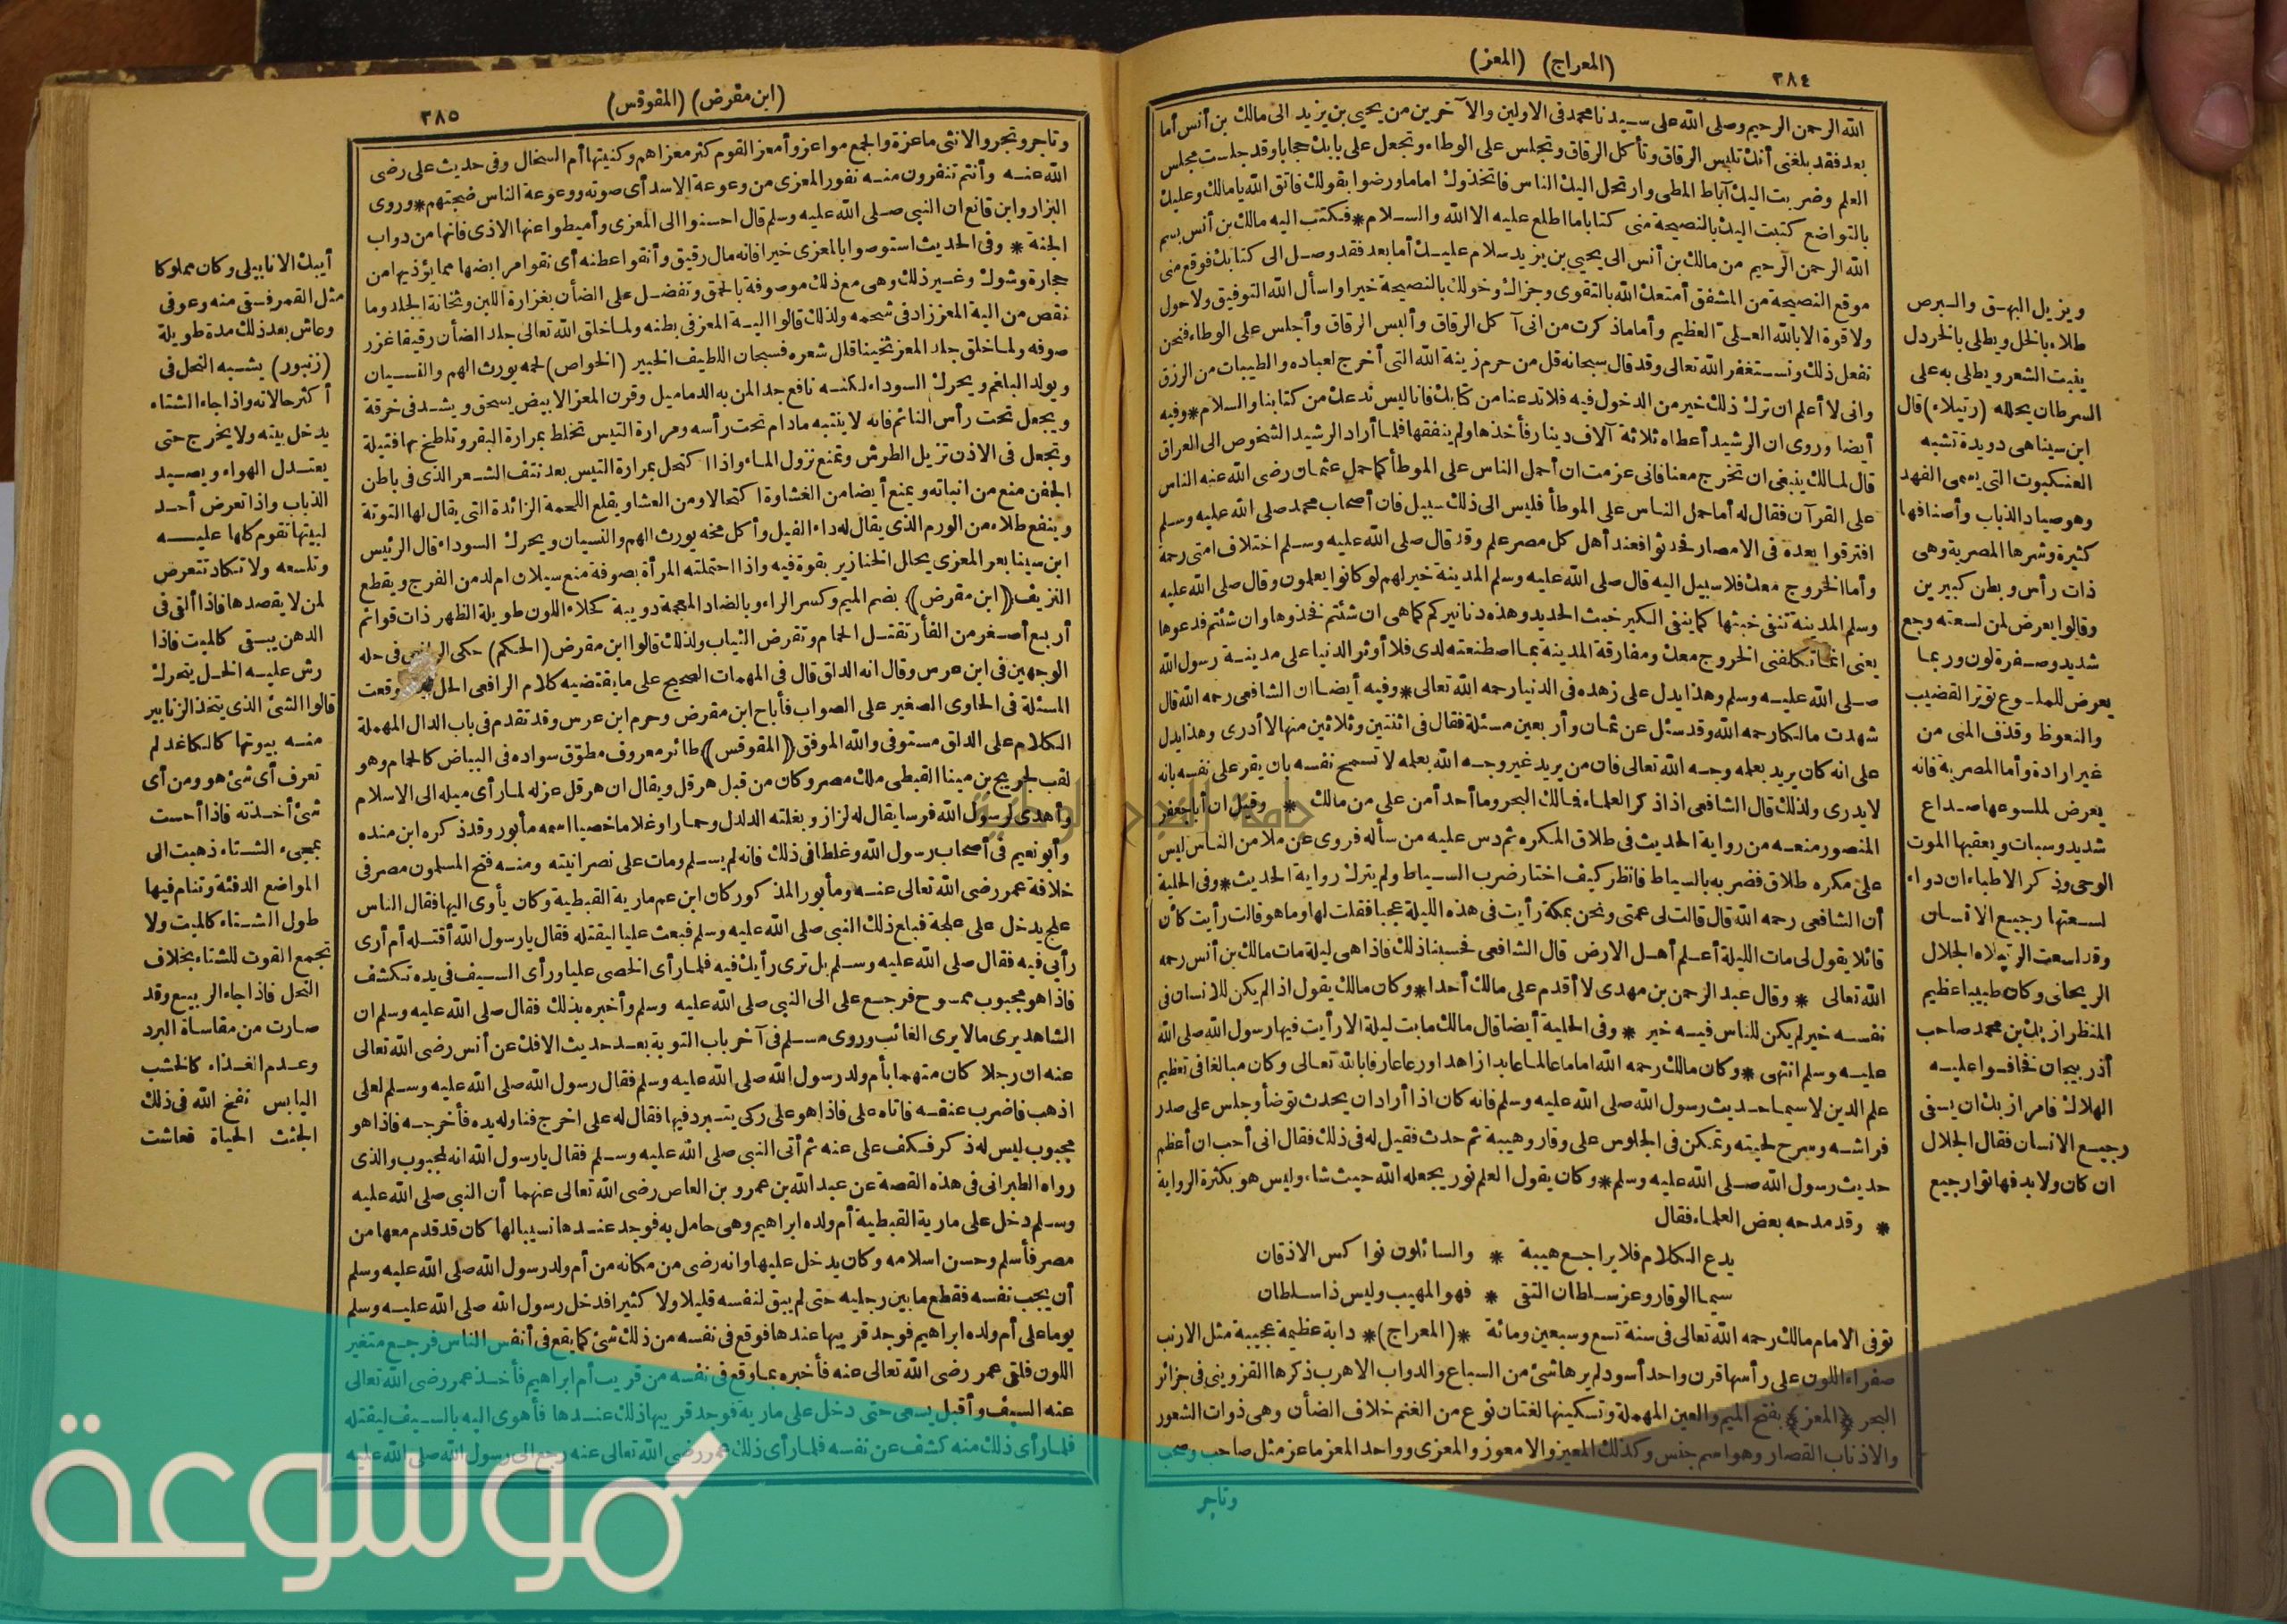 ٣٨٤
(المعراج) (المعز)
الله الرحمن الرحيم وصلى الله على سيدنا محمد فى الاولين والآخرين من يحيى بن يزيد الى مالك بن أنس أما
بعد فقد بلغنى أنك تلبس الرقاق وتأكل الرقاق وتجلس على الوطاء وتجعل على بابك حجابا وقد جلست مجلس
العلم وضربت اليك آباط المطى وارتحل اليك الناس فاتخذوك اماما ورضوا بقولك فاتق الله يا مالك وعليك
بالتواضع كتبت اليك بالنصيحة منى كتابا ما اطلع عليه الا الله والسلام * فكتب اليه مالك بن أنس بسم
الله الرحمن الرحيم من مالك بن أنس الى يحيى بن يزيد سلام عليك أما بعد فقد وصل الى كتابك فوقع منى
موقع النصيحة من المشفق أمتعك الله بالتقوى وجزاك وخولك بالنصيحة خيرا واسأل الله التوفيق ولا حول
ولا قوة الا بالله العلى العظيم وأما ما ذكرت من انى آكل الرقاق وألبس الرقاق وأجلس على الوطاء فنحن
نفعل ذلك ونستغفر الله تعالى وقد قال سبحانه قل من حرم زينة الله التى أخرج لعباده والطيبات من الرزق
وانى لا أعلم ان ترك ذلك خير من الدخول فيه فلا تدعنا من كتابك فانا ليس ندعك من كتابنا والسلام * وفيه
أيضا وروى ان الرشيد أعطاه ثلاثة آلاف دينار فأخذها ولم ينفقها فلما أراد الرشيد الشخوص الى العراق
قال لمالك ينبغى ان تخرج معنا فانى عزمت ان أحمل الناس على الموطأ كما حمل عثمان رضى الله عنه الناس
على القرآن فقال له أما حمل الناس على الموطأ فليس الى ذلك سبيل فان أصحاب محمد صلى الله عليه وسلم
افترقوا بعده فى الامصار فحدثوا فعند أهل كل مصر علم وقد قال صلى الله عليه وسلم اختلاف امتى رحمة
وأما الخروج معك فلا سبيل اليه قال صلى الله عليه وسلم المدينة خير لهم لو كانوا يعلمون وقال صلى الله عليه
وسلم المدينة تنفى خبثها كما ينفى الكير خبث الحديد وهذه دنانيركم كما هى ان شئتم فخذوها وان شئتم فدعوها
يعنى انما تكلفنى الخروج معك ومفارقة المدينة بما اصطنعته لدى فلا أوثر الدنيا على مدينة رسول الله
صلى الله عليه وسلم وهذا يدل على زهده فى الدنيا رحمه الله تعالى * وفيه أيضا ان الشافعى رحمه الله قال
شهدت مالكا رحمه الله وقد سئل عن ثمان وأربعين مسئلة فقال فى اثنتين وثلاثين منها لا أدرى وهذا يدل
على انه كان يريد بعلمه وجه الله تعالى فان من يريد غير وجه الله بعلمه لا تسمح نفسه بان يقر على نفسه بانه
لا يدرى ولذلك قال الشافعى اذا ذكر العلماء فمالك البحر وما أحد أمن على من مالك * وقيل ان أبا جعفر
المنصور منعه من رواية الحديث فى طلاق المكره ثم دس عليه من سأله فروى عن ملا من الناس ليس
على مكره طلاق فضربه بالسياط فانظر كيف اختار ضرب السياط ولم يترك رواية الحديث * وفى الحلية
أن الشافعى رحمه الله قال قالت لى عمتى ونحن بمكة رأيت فى هذه الليلة عجبا فقلت لها وما هو قالت رأيت كأن
قائلا يقول لى مات الليلة أعلم أهل الارض قال الشافعى فحسبنا ذلك فاذا هى ليلة مات مالك بن أنس رحمه
الله تعالى * وقال عبد الرحمن بن مهدى لا أقدم على مالك أحدا * وكان مالك يقول اذا لم يكن للانسان فى
نفسه خير لم يكن للناس فيه خير * وفى الحلية أيضا قال مالك ما بت ليلة الا رأيت فيها رسول الله صلى الله
عليه وسلم انتهى * وكان مالك رحمه الله اماما عالما عابدا زاهدا ورعا عارفا بالله تعالى وكان مبالغا فى تعظيم
علم الدين لا سيما حديث رسول الله صلى الله عليه وسلم فانه كان اذا أراد ان يحدث توضأ وجلس على صدر
فراشه وسرح لحيته وتمكن فى الجلوس على وقار وهيبة ثم حدث فقيل له فى ذلك فقال انى أحب ان أعظم
حديث رسول الله صلى الله عليه وسلم * وكان يقول العلم نور يجعله الله حيث شاء وليس هو بكثرة الرواية
* وقد مدحه بعض العلماء فقال
يدع الكلام فلا يراجع هيبة * والسائلون نواكس الاذقان
سيما الوقار وعز سلطان التقى * فهو المهيب وليس ذا سلطان
توفى الامام مالك رحمه الله تعالى فى سنة تسع وسبعين ومائة *(المعراج)* دابة عظيمة عجيبة مثل الارنب
صفراء اللون على رأسها قرن واحد أسود لم يرها شئ من السباع والدواب الا هرب ذكرها القزوينى فى جزائر
البحر *(المعز)* بفتح الميم والعين المهملة وتسكينها لغتان نوع من الغنم خلاف الضأن وهى ذوات الشعور
والاذناب القصار وهو اسم جنس وكذلك المعيز والامعوز والمعزى وواحد المعز ماعز مثل صاحب وصحب
وتاجر
ويزيل البهق والبرص
طلاء بالخل ويطلى بالخردل
ينبت الشعر ويطلى به على
السرطان يحلله (رتيلاء) قال
ابن سينا هى دويدة تشبه
العنكبوت التى يسمى الفهد
وهو صياد الذباب وأصنافها
كثيرة وشرها المصرية وهى
ذات رأس وبطن كبيرين
وقالوا يعرض لمن لسعته وجع
شديد وصفرة لون وربما
يعرض للملسوع توتر القضيب
والنعوظ وقذف المنى من
غير ارادة وأما المصرية فانه
يعرض لملسوعها صداع
شديد وسبات ويعقبها الموت
الوحى وذكر الاطباء ان دواء
لسعتها رجيع الانسان
وقد لسعت الرتيلاء الجلال
الريحانى وكان طبيبا عظيم
المنظر ازبك بن محمد صاحب
أذربيجان فخافوا عليه
الهلاك فامر ازبك ان يسقى
رجيع الانسان فقال الجلال
ان كان ولا بد فهاتوا رجيع
(ابن مقرض) (المقوقس)
٣٨٥
وتاجر وتجر والانثى ماعزة والجمع مواعز وأمعز القوم كثر معزاهم وكنيتها أم السخال وفى حديث على رضى
الله عنه وأنتم تنفرون منه نفور المعزى من وعوعة الاسد أى صوته ووعوعة الناس ضجتهم * وروى
البزار وابن قانع ان النبى صلى الله عليه وسلم قال احسنوا الى المعزى وأميطوا عنها الاذى فانها من دواب
الجنة * وفى الحديث استوصوا بالمعزى خيرا فانه مال رقيق وأنقوا عطنه أى نقوا مرابضها مما يؤذيها من
حجارة وشوك وغير ذلك وهى مع ذلك موصوفة بالحمق وتفضل على الضأن بغزارة اللبن وثخانة الجلد وما
نقص من الية المعز زاد فى شحمه ولذلك قالوا الية المعز فى بطنه ولما خلق الله تعالى جلد الضأن رقيقا غزر
صوفه ولما خلق جلد المعز ثخينا قلل شعره فسبحان اللطيف الخبير (الخواص) لحمه يورث الهم والنسيان
ويولد البلغم ويحرك السوداء لكنه نافع جدا لمن به الدماميل وقرن المعز الابيض يسحق ويشد فى خرقة
ويجعل تحت رأس النائم فانه لا ينتبه مادام تحت رأسه ومرارة التيس تخلط بمرارة البقر وتلطخ بها فتيلة
وتجعل فى الاذن تزيل الطرش وتمنع نزول الماء واذا اكتحل بمرارة التيس بعد نتف الشعر الذى فى باطن
الجفن منع من انباته ويمنع أيضا من الغشاوة اكتحالا ومن العشا ويقلع اللحمة الزائدة التى يقال لها التوتة
وينفع طلاء من الورم الذى يقال له داء الفيل وأكل مخه يورث الهم والنسيان ويحرك السوداء قال الرئيس
ابن سينا بعر المعزى يحلل الخنازير بقوة فيه واذا احتملته المرأة بصوفة منع سيلان الدم من الفرج ويقطع
النزيف *(ابن مقرض)* بضم الميم وكسر الراء وبالضاد المعجمة دويبة كحلاء اللون طويلة الظهر ذات قوائم
أربع أصغر من الفأر تقتل الحمام وتقرض الثياب ولذلك قالوا ابن مقرض (الحكم) حكى فى حله
الوجهين فى ابن عرس وقال انه الدلق قال فى المهمات الصحيح على ما يقتضيه كلام الرافعى الحل وقعت
المسئلة فى الحاوى الصغير على الصواب فأباح ابن مقرض وحرم ابن عرس وقد تقدم فى باب الدال المهملة
الكلام على الدلق مستوفى والله الموفق *(المقوقس)* طائر معروف مطوق سواده فى البياض كالحمام وهو
لقب لجريج بن مينا القبطى ملك مصر وكان من قبل هرقل ويقال ان هرقل عزله لما رأى ميله الى الاسلام
وأهدى لرسول الله فرسا يقال له لزاز وبغلته الدلدل وحمارا وغلاما خصيا اسمه مأبور وقد ذكره ابن منده
وأبو نعيم فى أصحاب رسول الله وغلطا فى ذلك فانه لم يسلم ومات على نصرانيته ومنه فتح المسلمون مصر فى
خلافة عمر رضى الله تعالى عنه ومأبور المذكور كان ابن عم مارية القبطية وكان يأوى اليها فقال الناس
علج يدخل على علجة فبلغ ذلك النبى صلى الله عليه وسلم فبعث عليا ليقتله فقال يا رسول الله أقتله أم أرى
رأيى فيه فقال صلى الله عليه وسلم بل ترى رأيك فيه فلما رأى الخصى عليا ورأى السيف فى يده تكشف
فاذا هو مجبوب ممسوح فرجع على الى النبى صلى الله عليه وسلم وأخبره بذلك فقال صلى الله عليه وسلم ان
الشاهد يرى ما لا يرى الغائب وروى مسلم فى آخر باب التوبة بعد حديث الافك عن أنس رضى الله تعالى
عنه ان رجلا كان متهما بأم ولد رسول الله صلى الله عليه وسلم فقال رسول الله صلى الله عليه وسلم لعلى
اذهب فاضرب عنقه فاتاه على فاذا هو على ركى يتبرد فيها فقال له على اخرج فناوله يده فأخرجه فاذا هو
مجبوب ليس له ذكر فكف على عنه ثم أتى النبى صلى الله عليه وسلم فقال يا رسول الله انه لمجبوب والذى
رواه الطبرانى فى هذه القصة عن عبد الله بن عمرو بن العاص رضى الله تعالى عنهما أن النبى صلى الله عليه
وسلم دخل على مارية القبطية أم ولده ابراهيم وهى حامل به فوجد عندها نسيبا لها كان قد قدم معها من
مصر فأسلم وحسن اسلامه وكان يدخل عليها وانه رضى من مكانه من أم ولد رسول الله صلى الله عليه وسلم
أن يجب نفسه فقطع ما بين رجليه حتى لم يبق لنفسه قليلا ولا كثيرا فدخل رسول الله صلى الله عليه وسلم
يوما على أم ولده ابراهيم فوجد قريبها عندها فوقع فى نفسه من ذلك شئ كما يقع فى أنفس الناس فرجع متغير
اللون فلقى عمر رضى الله تعالى عنه فأخبره بما وقع فى نفسه من قريب أم ابراهيم فأخذ عمر رضى الله تعالى
عنه السيف وأقبل يسعى حتى دخل على مارية فوجد قريبها ذلك عندها فأهوى اليه بالسيف ليقتله
فلما رأى ذلك منه كشف عن نفسه فلما رأى ذلك عمر رضى الله تعالى عنه رجع الى رسول الله صلى الله عليه
أيبك الانابيلى وكان مملوكا
مثل القمر فسقى منه وعوفى
وعاش بعد ذلك مدة طويلة
(زنبور) يشبه النحل فى
أكثر حالاته واذا جاء الشتاء
يدخل بيته ولا يخرج حتى
يعتدل الهواء ويصيد
الذباب واذا تعرض أحد
لبيتها تقوم كلها عليه
وتلسعه ولا تكاد تتعرض
لمن لا يقصدها فاذا ألقى فى
الدهن يبقى كالميت فاذا
رش عليه الخل يتحرك
قالوا الشئ الذى يتخذ الزنابير
منه بيوتها كالكاغد لم
تعرف أى شئ هو ومن أى
شئ أخذته فاذا أحست
بمجىء الشتاء ذهبت الى
المواضع الدفئة وتنام فيها
طول الشتاء كالميت ولا
تجمع القوت للشتاء بخلاف
النحل فاذا جاء الربيع وقد
صارت من مقاساة البرد
وعدم الغذاء كالخشب
اليابس نفخ الله فى ذلك
الجثث الحياة فعاشت
موسوعة